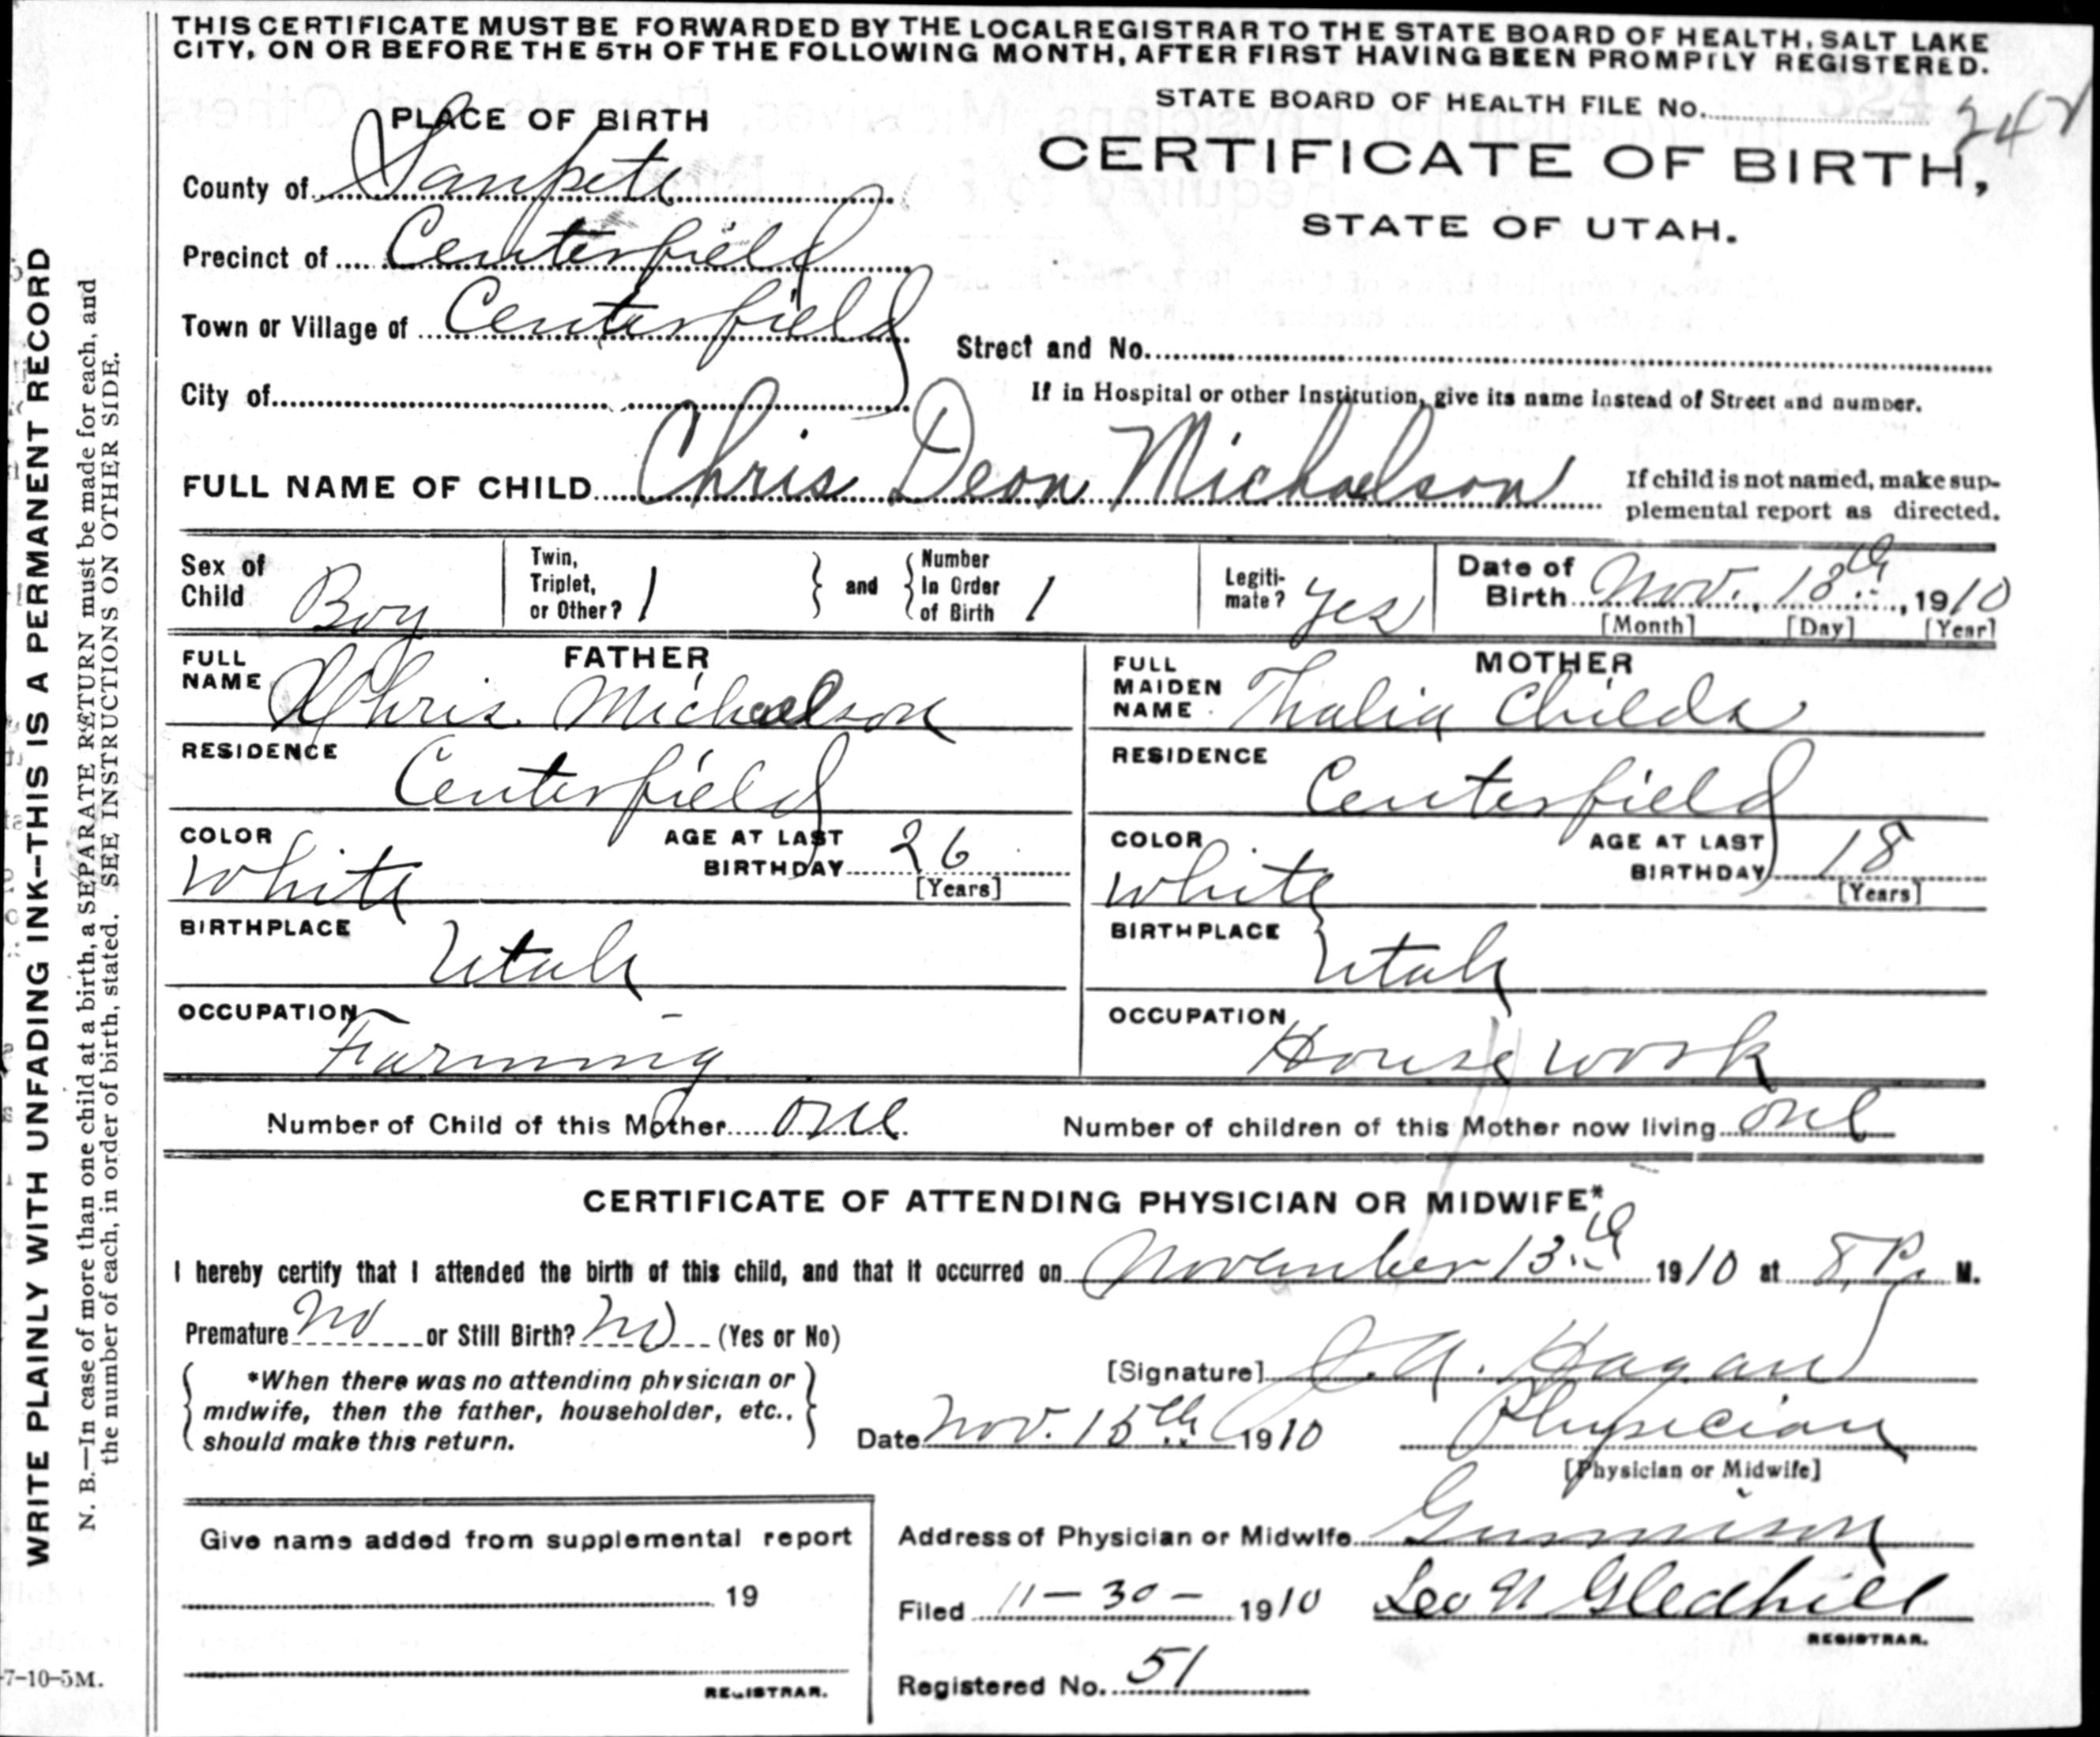 THIS CERTIFICATE MUST BE FORWARDED BY THE LOCAL REGISTRAR TO THE STATE BOARD OF HEALTH, SALT LAKE
CITY, ON OR BEFORE THE 5TH OF THE FOLLOWING MONTH, AFTER FIRST HAVING BEEN PROMPTLY REGISTERED.
STATE BOARD OF HEALTH FILE No. 242
CERTIFICATE OF BIRTH,
STATE OF UTAH.
PLACE OF BIRTH
County of Sanpete
Precinct of Centerfield
Town or Village of Centerfield
Street and No.
City of
If in Hospital or other Institution, give its name instead of Street and number.
FULL NAME OF CHILD Chris Deon Michaelson
If child is not named, make sup-
plemental report as directed.
Sex of Child Boy
Twin, Triplet, or Other? 1 and Number In Order of Birth 1
Legiti-mate? yes
Date of Birth Nov. 13th, 1910
[Month] [Day] [Year]
FATHER
FULL NAME Chris Michaelson
RESIDENCE Centerfield
COLOR White AGE AT LAST BIRTHDAY 26
[Years]
BIRTHPLACE Utah
OCCUPATION Farming
MOTHER
FULL MAIDEN NAME Thalia Childs
RESIDENCE Centerfield
COLOR White AGE AT LAST BIRTHDAY 18
[Years]
BIRTHPLACE Utah
OCCUPATION House work
Number of Child of this Mother one Number of children of this Mother now living one
CERTIFICATE OF ATTENDING PHYSICIAN OR MIDWIFE*
I hereby certify that I attended the birth of this child, and that it occurred on November 13th 1910 at 8 P. M.
Premature no or Still Birth? no (Yes or No)
*When there was no attending physician or
midwife, then the father, householder, etc.,
should make this return.
[Signature] J.A. Hagan
Date Nov. 15th 1910 Physician
[Physician or Midwife]
Give name added from supplemental report
19
REGISTRAR.
Address of Physician or Midwife Gunnison
Filed 11-30-1910 Leo N Gledhill
REGISTRAR.
Registered No. 51
7-10-5M.
WRITE PLAINLY WITH UNFADING INK--THIS IS A PERMANENT RECORD
N. B.—In case of more than one child at a birth, a SEPARATE RETURN must be made for each, and
the number of each, in order of birth, stated. SEE INSTRUCTIONS ON OTHER SIDE.